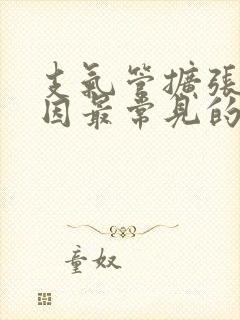 支氣管擴張
因最常見的
童奴